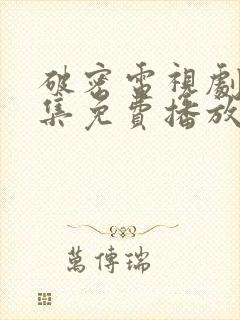 破密電視劇
集免費播放
萬傳瑞